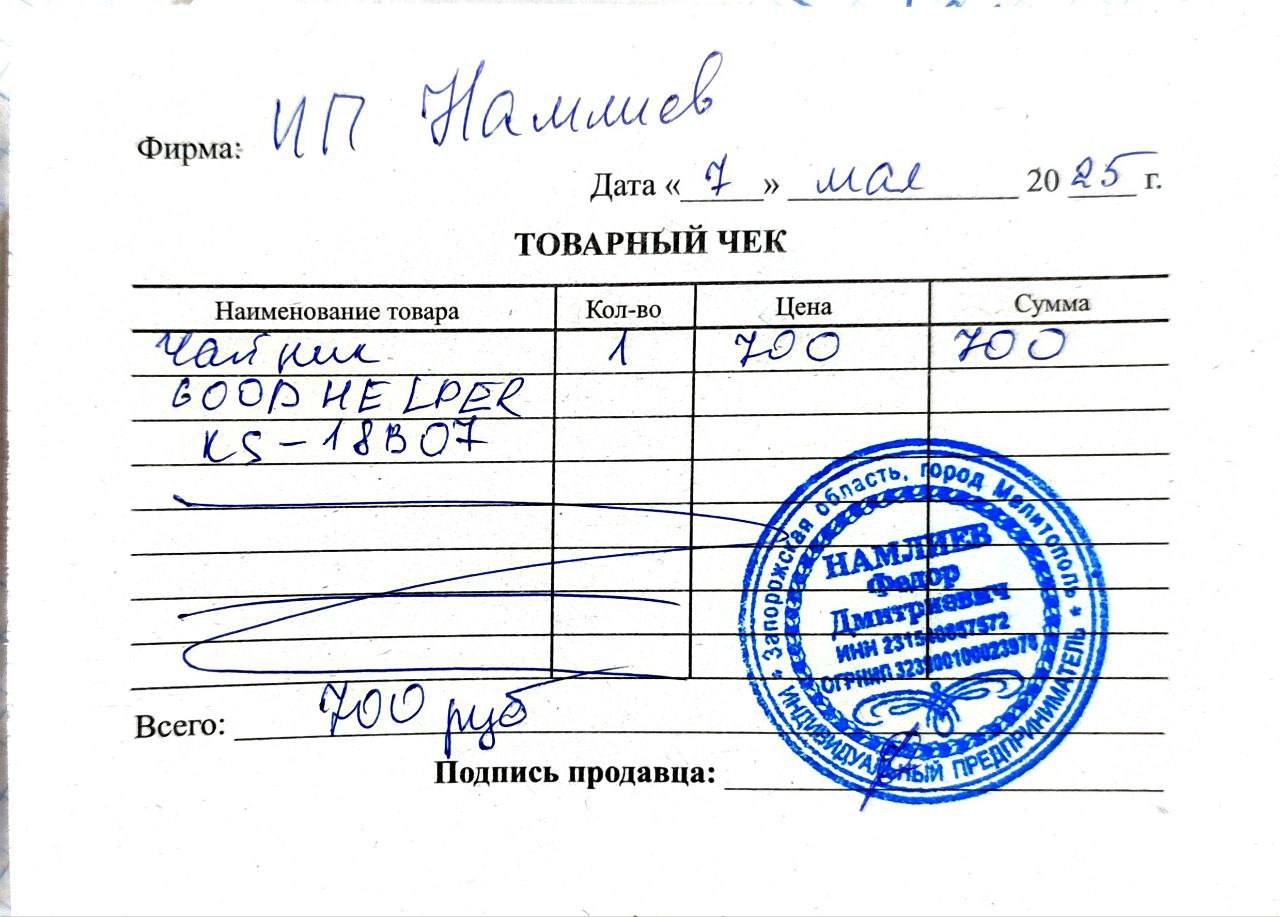 Фирма: ИП Намлиев
Дата «7» мая 2025 г.
ТОВАРНЫЙ ЧЕК
Наименование товара Кол-во Цена Сумма
Чайник 1 700 700
GOOD HELPER
KS-18B07
Всего: 700 руб
Подпись продавца:
* Запорожская область, город Мелитополь *
НАМЛИЕВ
Федор
Дмитриевич
ИНН
ОГРНИП
ИНДИВИДУАЛЬНЫЙ ПРЕДПРИНИМАТЕЛЬ